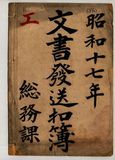 昭和十七年
工
文書發送和簿
總務課